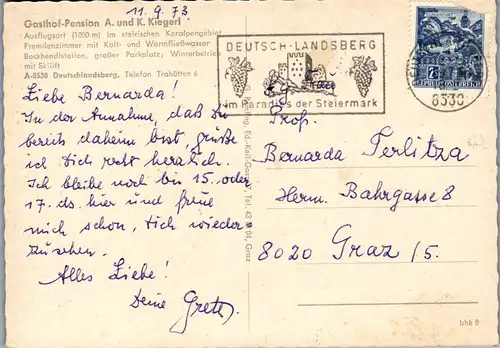 11. 9. 73
Gasthof-Pension A. und K. Kiegerl
Ausflugsort (1000 m) im steirischen Koralpengebiet
Fremdenzimmer mit Kalt- und Warmfließwasser
Backhendlstation, großer Parkplatz; Winterbetrieb
mit Skilift
A-8530 Deutschlandsberg, Telefon Trahütten 6
Liebe Bernarda!
In der Annahme, daß Du
bereits daheim bist, grüße
ich Dich recht herzlich.
Ich bleibe noch bis 15. oder
17. ds. hier und freue
mich schon, Dich wieder
zusehen.
Alles Liebe!
Deine Grete
DEUTSCH-LANDSBERG
im Paradies der Steiermark
8530
REPUBLIK ÖSTERREICH
Prof.
Bernarda Terlitza
Herm. Bahrgasse 8
8020 Graz /5.
Ed.-Keil-Gasse, Tel. 43 11 01, Graz
bhk B